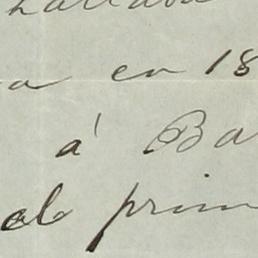 a en 18
á Ba
al prim